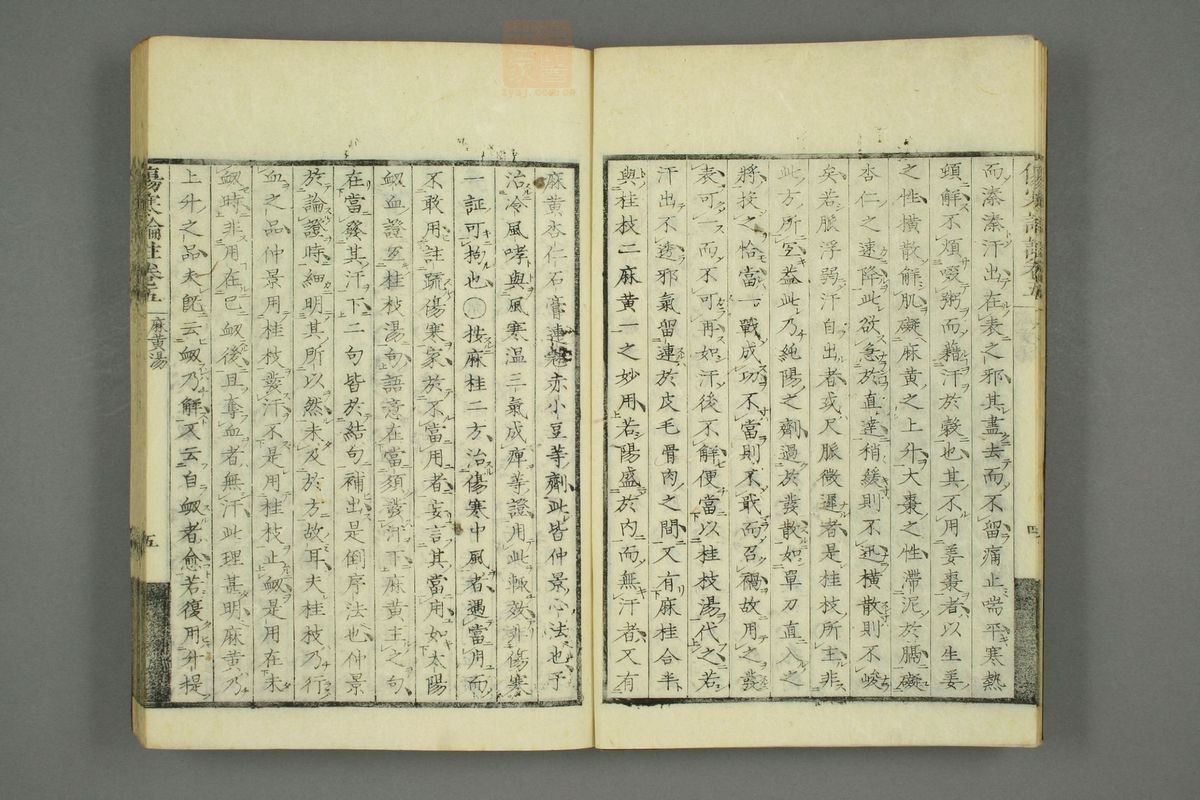 而溱溱汗出在表之邪其盡去而不留痛止喘平寒熱
頭解不煩啜粥而藉汗於穀也其不用姜棗者以生姜
之性橫散解肌礙麻黃之上升大棗之性滯泥於膈礙
杏仁之速降此欲急於直達稍緩則不迅橫散則不峻
矣若脈浮弱汗自出者或尺脈微遲者是桂枝所主非
此方所宜蓋此乃純陽之劑過於發散如單刀直入之
將投之恰當一戰成功不當則不戢而召禍故用之發
表可一而不可再如汗後不解便當以桂枝湯代之若
汗出不透邪氣留連於皮毛骨肉之間又有麻桂合半
與桂枝二麻黃一之妙用若陽盛於內而無汗者又有
四
麻黃杏仁石膏連翹赤小豆等劑此皆仲景心法也予
治冷風哮與風寒温三氣成痺等證用此輒效非傷寒
一証可拘也〇按麻桂二方治傷寒中風者遇當用而
不敢用註疏傷寒家於不當用者妄言其當用如太陽
衂血證宜桂枝湯句語意在當須發汗下麻黃主之句
在當發其汗下二句皆於結句補出是倒序法也仲景
於論證時細明其所以然未及於方故耳夫桂枝乃行
血之品仲景用桂枝發汗不是用桂枝止衂是用在未
衂時非用在已衂後且奪血者無汗此理甚明麻黃乃
上升之品夫既云衂乃解又云自衂者愈若復用升提
傷寒論註卷五
麻黃湯
五